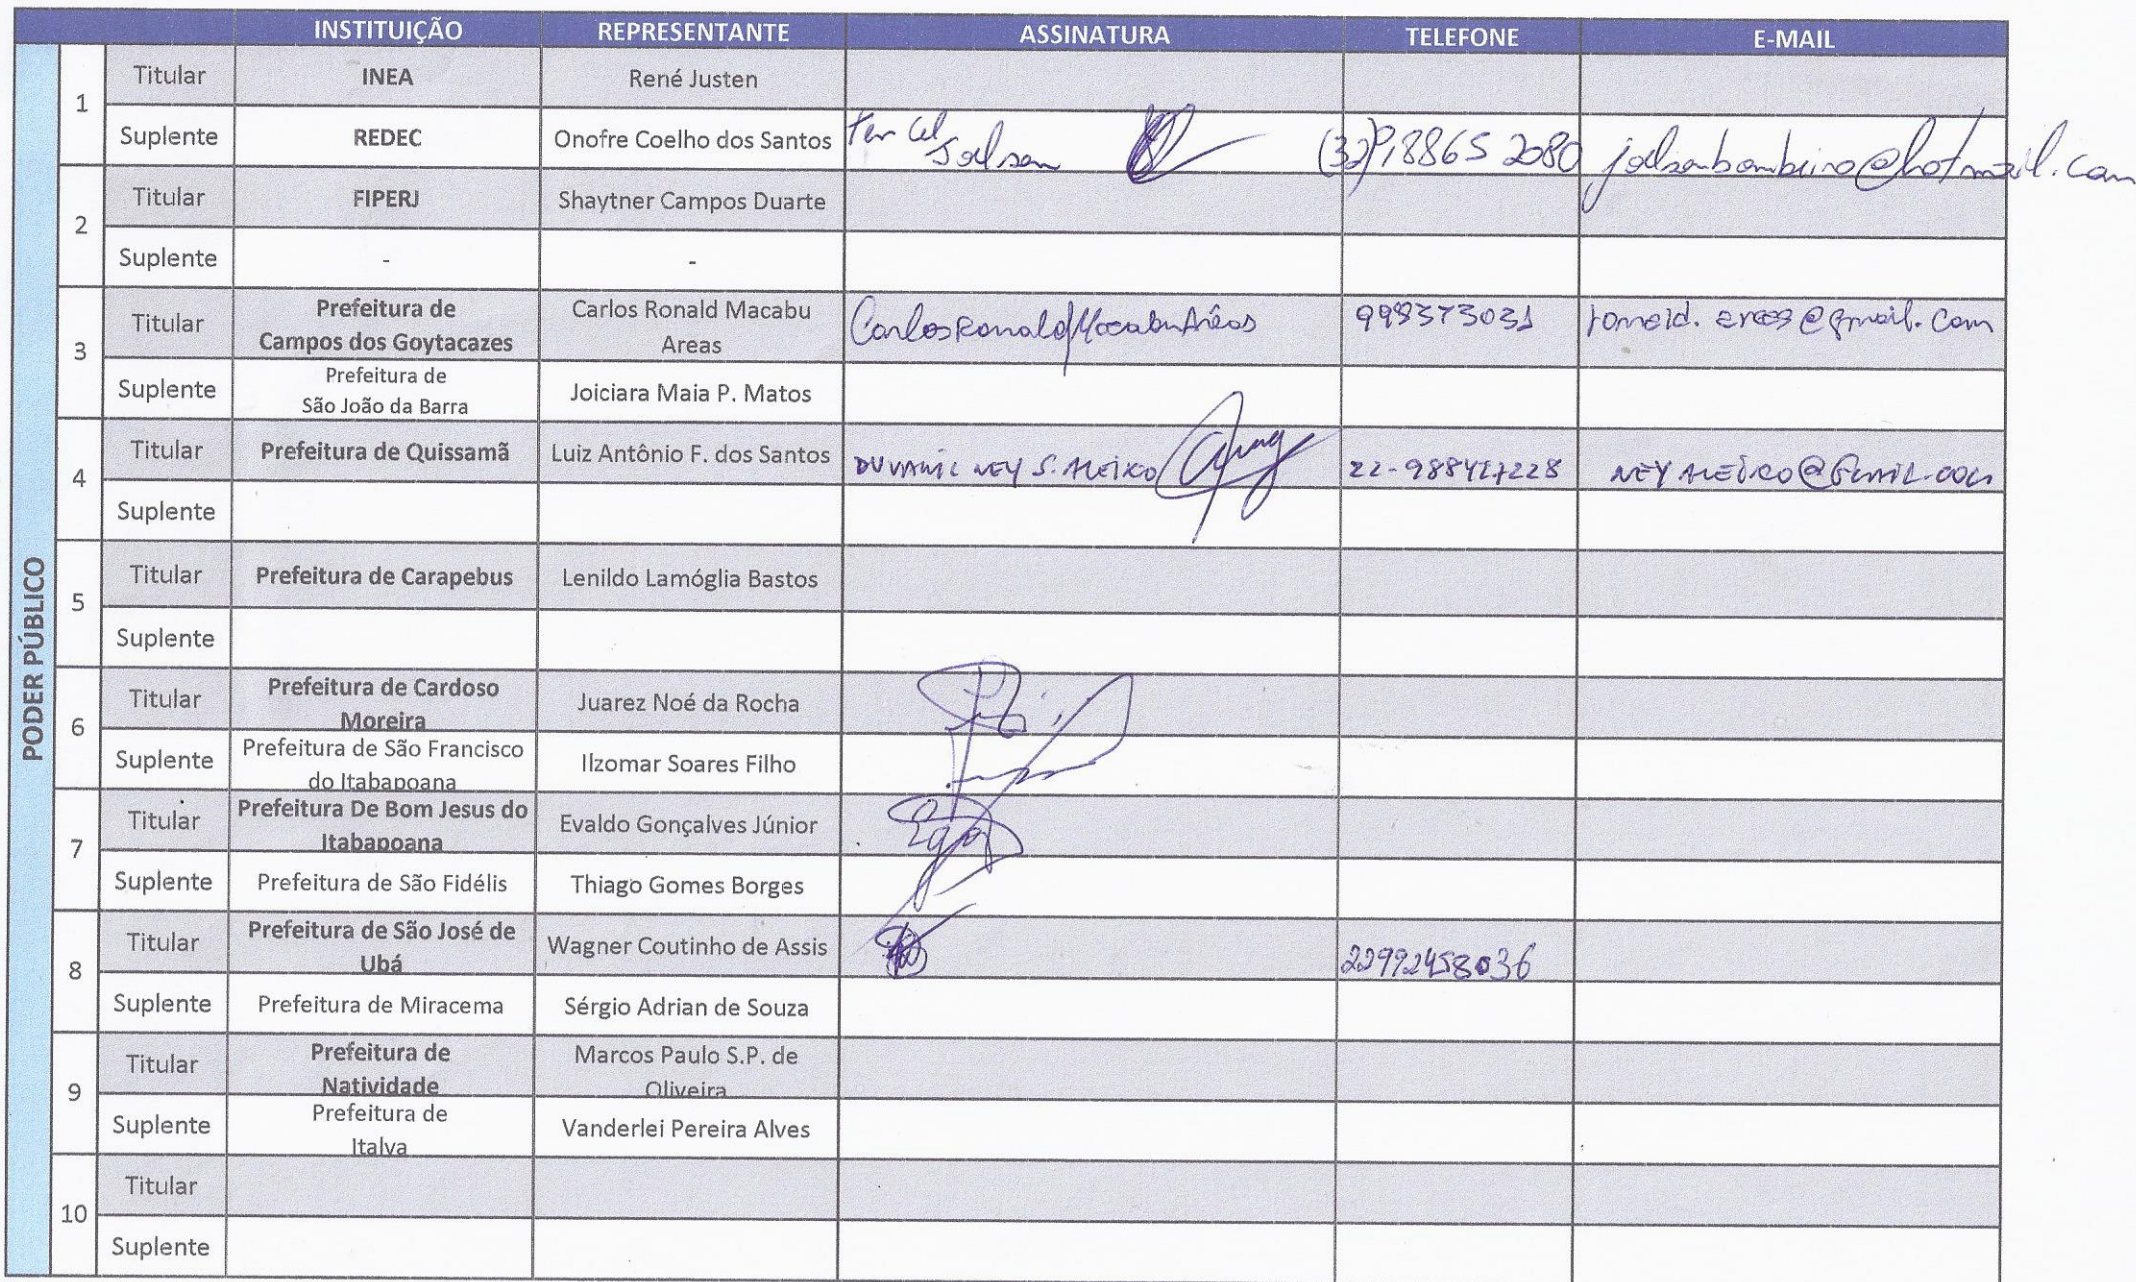 INSTITUIÇÃO REPRESENTANTE ASSINATURA TELEFONE E-MAIL
PODER PÚBLICO
1
Titular INEA René Justen
Suplente REDEC Onofre Coelho dos Santos Ten Cel Joelson (32)98865 2080 joelsonbombeiro@hotmail.com
2
Titular FIPERJ Shaytner Campos Duarte
Suplente - -
3
Titular Prefeitura de
Campos dos Goytacazes Carlos Ronald Macabu
Areas Carlos Ronald Macabu Arêas 998373031 ronald.areas@gmail.com
Suplente Prefeitura de
São João da Barra Joiciara Maia P. Matos
4
Titular Prefeitura de Quissamã Luiz Antônio F. dos Santos NEY S. ALEIXO NEYALEIXO@GMAIL.COM
Suplente
5
Titular Prefeitura de Carapebus Lenildo Lamóglia Bastos
Suplente
6
Titular Prefeitura de Cardoso
Moreira Juarez Noé da Rocha
Suplente Prefeitura de São Francisco
do Itabapoana Ilzomar Soares Filho
7
Titular Prefeitura De Bom Jesus do
Itabapoana Evaldo Gonçalves Júnior
Suplente Prefeitura de São Fidélis Thiago Gomes Borges
8
Titular Prefeitura de São José de
Ubá Wagner Coutinho de Assis 22992458036
Suplente Prefeitura de Miracema Sérgio Adrian de Souza
9
Titular Prefeitura de
Natividade Marcos Paulo S.P. de
Oliveira
Suplente Prefeitura de
Italva Vanderlei Pereira Alves
10
Titular
Suplente